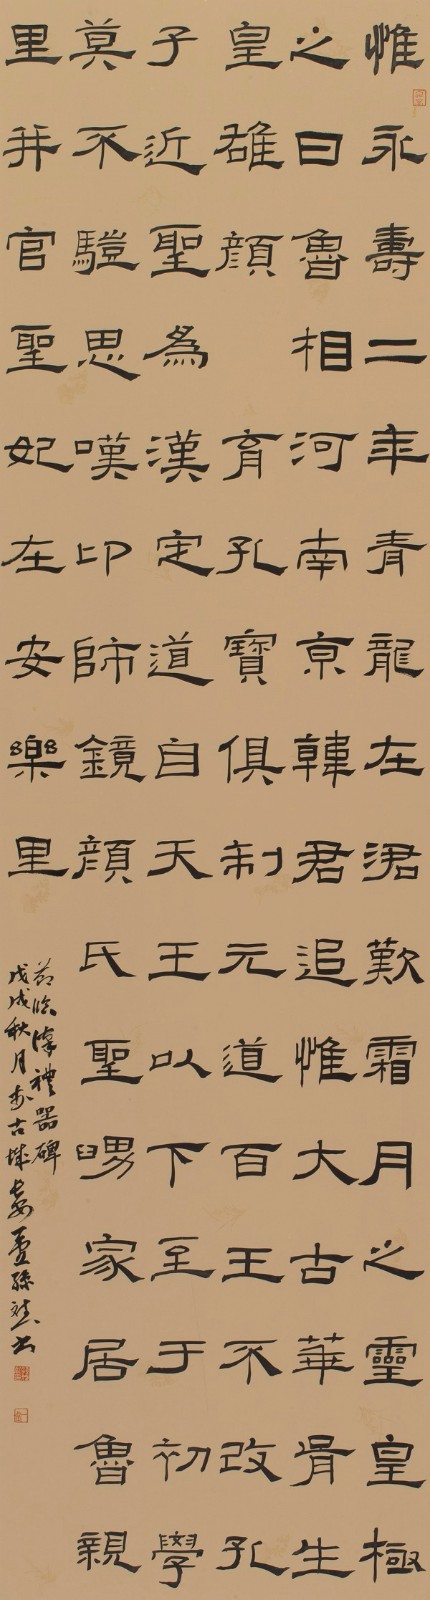 惟永壽二年青龍在涒歎霜月之靈皇極
之日魯相河南京韓君追惟大古華胥生
皇雄顏育孔寶俱制元道百王不改孔
子近聖為漢定道自天王以下至于初學
莫不驥思嘆卬師鏡顏氏聖舅家居魯親
里并官聖妃在安樂里
節臨漢禮器碑
戊戌秋月於古城長安書